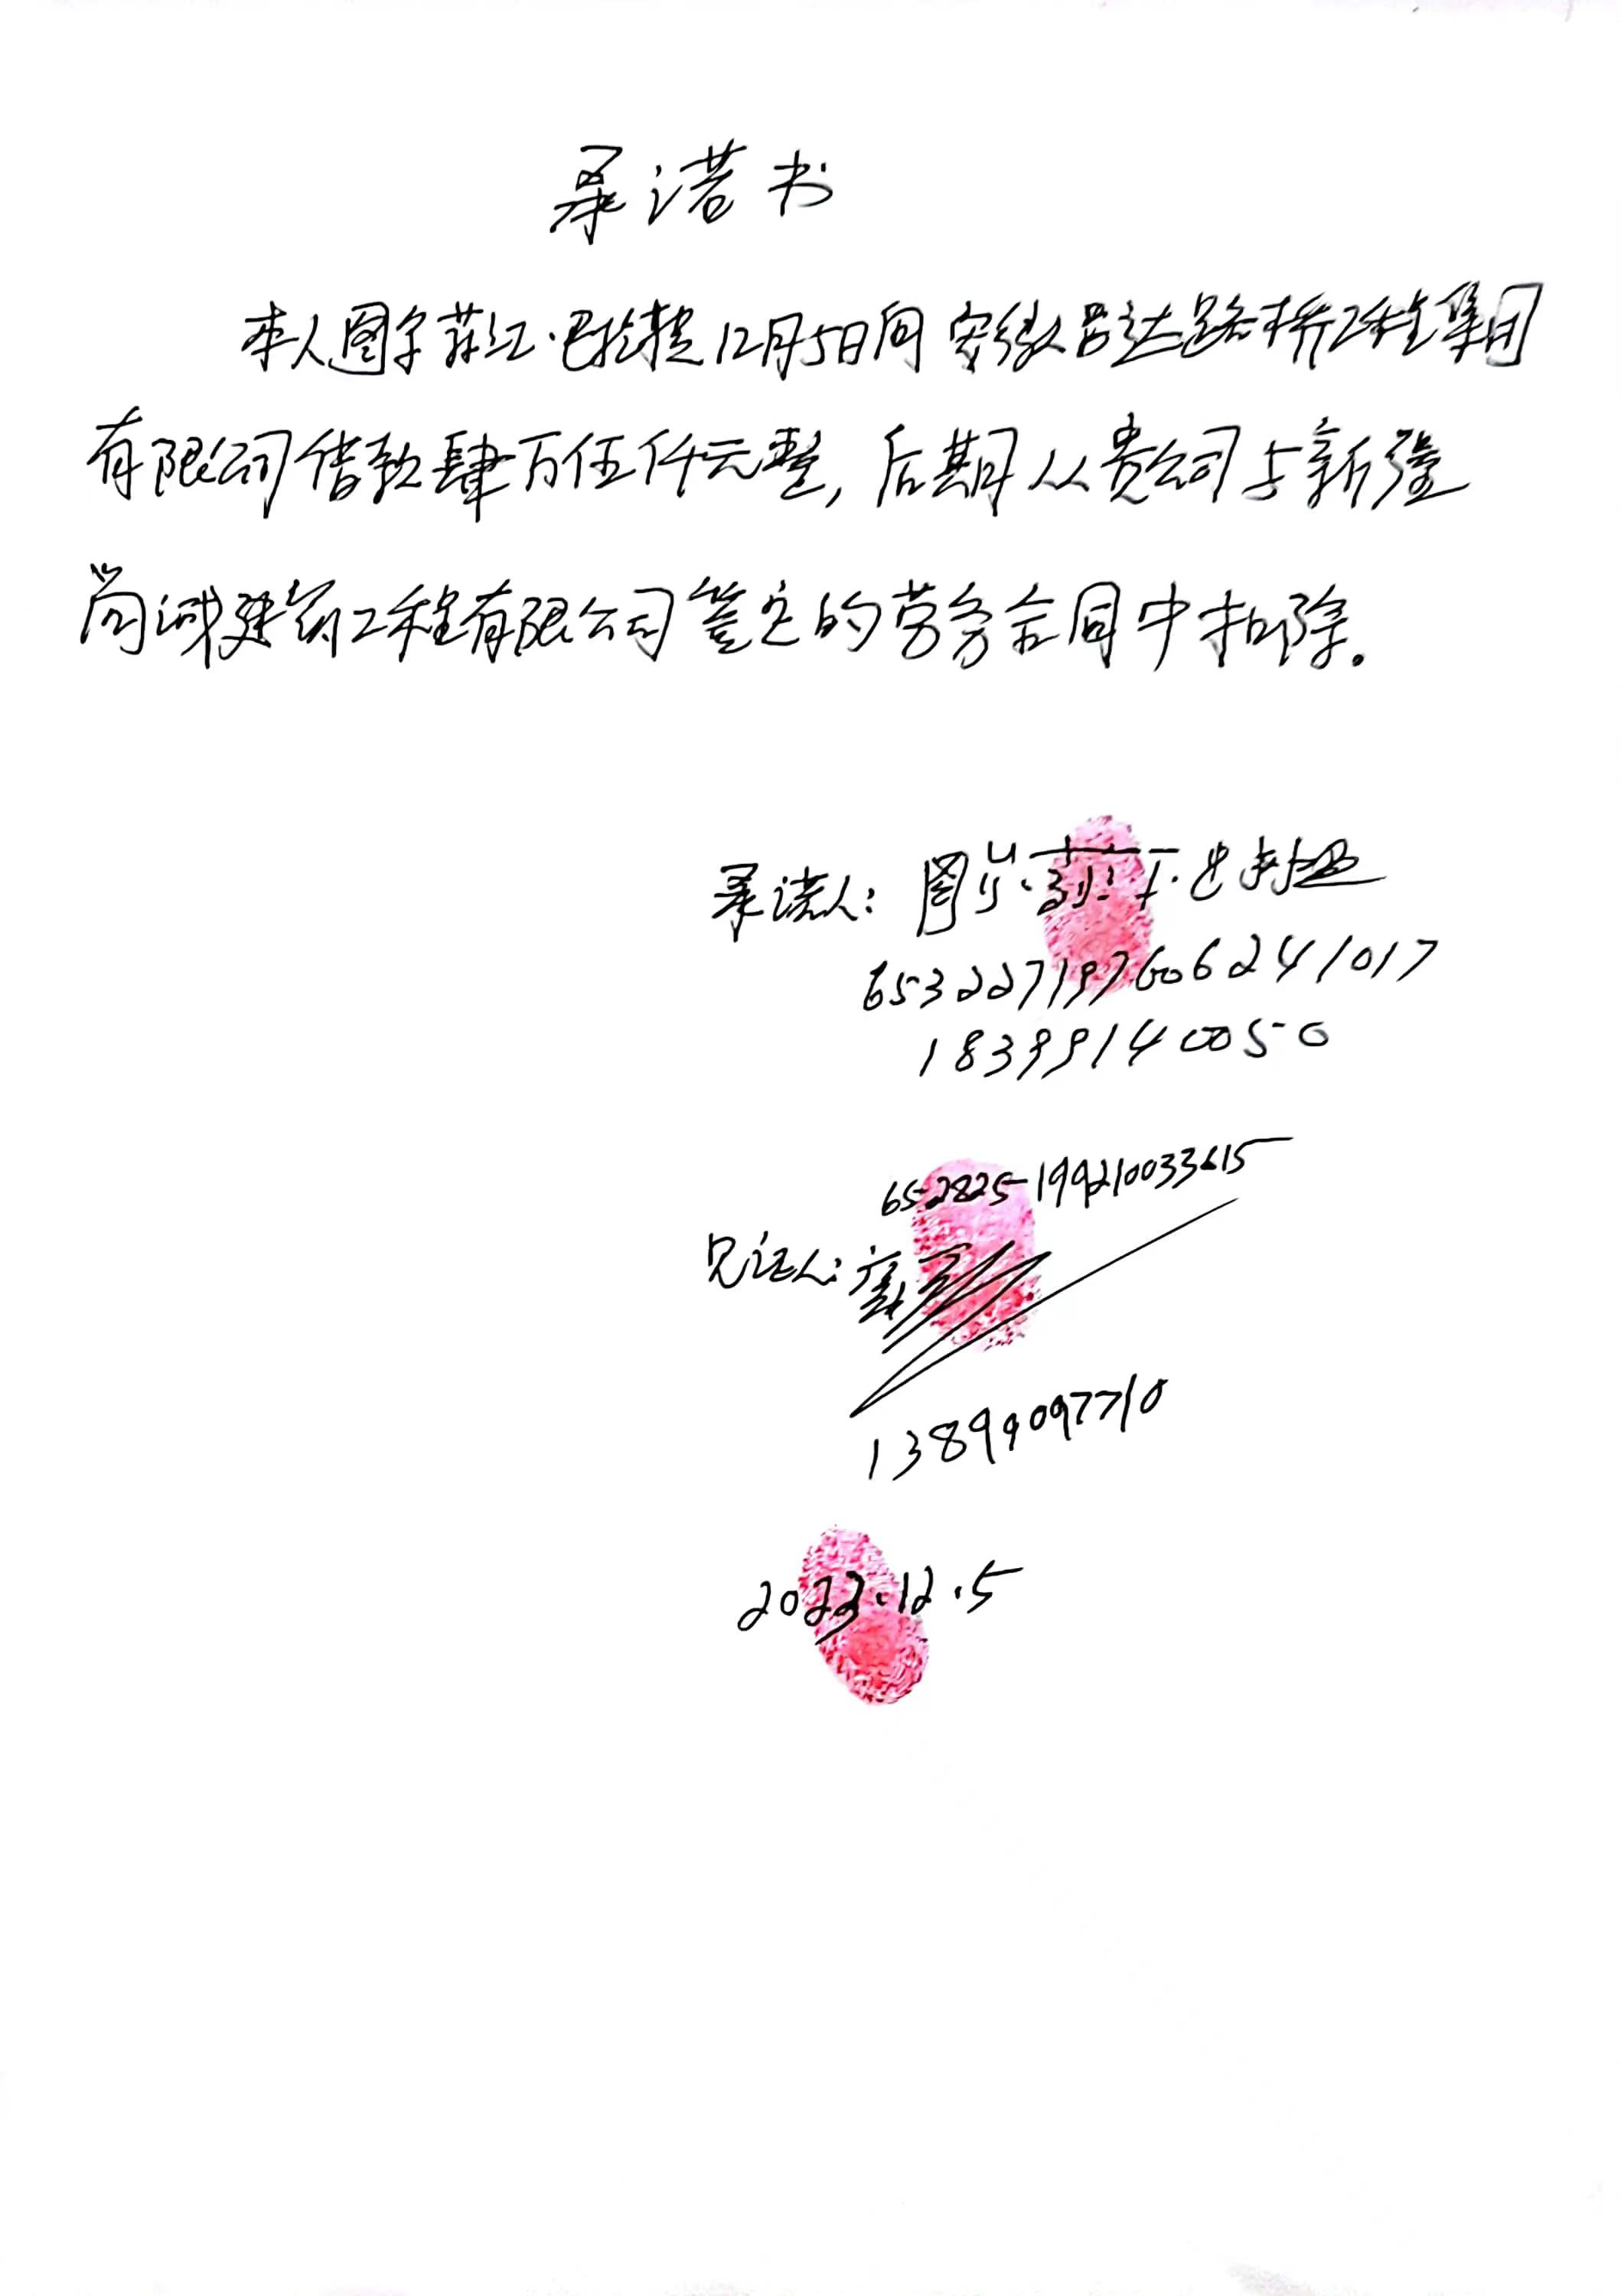 承诺书
本人图尔荪江·巴拉提12月5日向安徽昌达路桥工程集团
有限公司借款肆万伍仟元整,后期从贵公司与新疆
尚诚建筑工程有限公司签定的劳务合同中扣除。
承诺人:图尔荪江·巴拉提
653227197606241017
18399140050
652825199210033615
见证人:
13899097710
2023.12.5